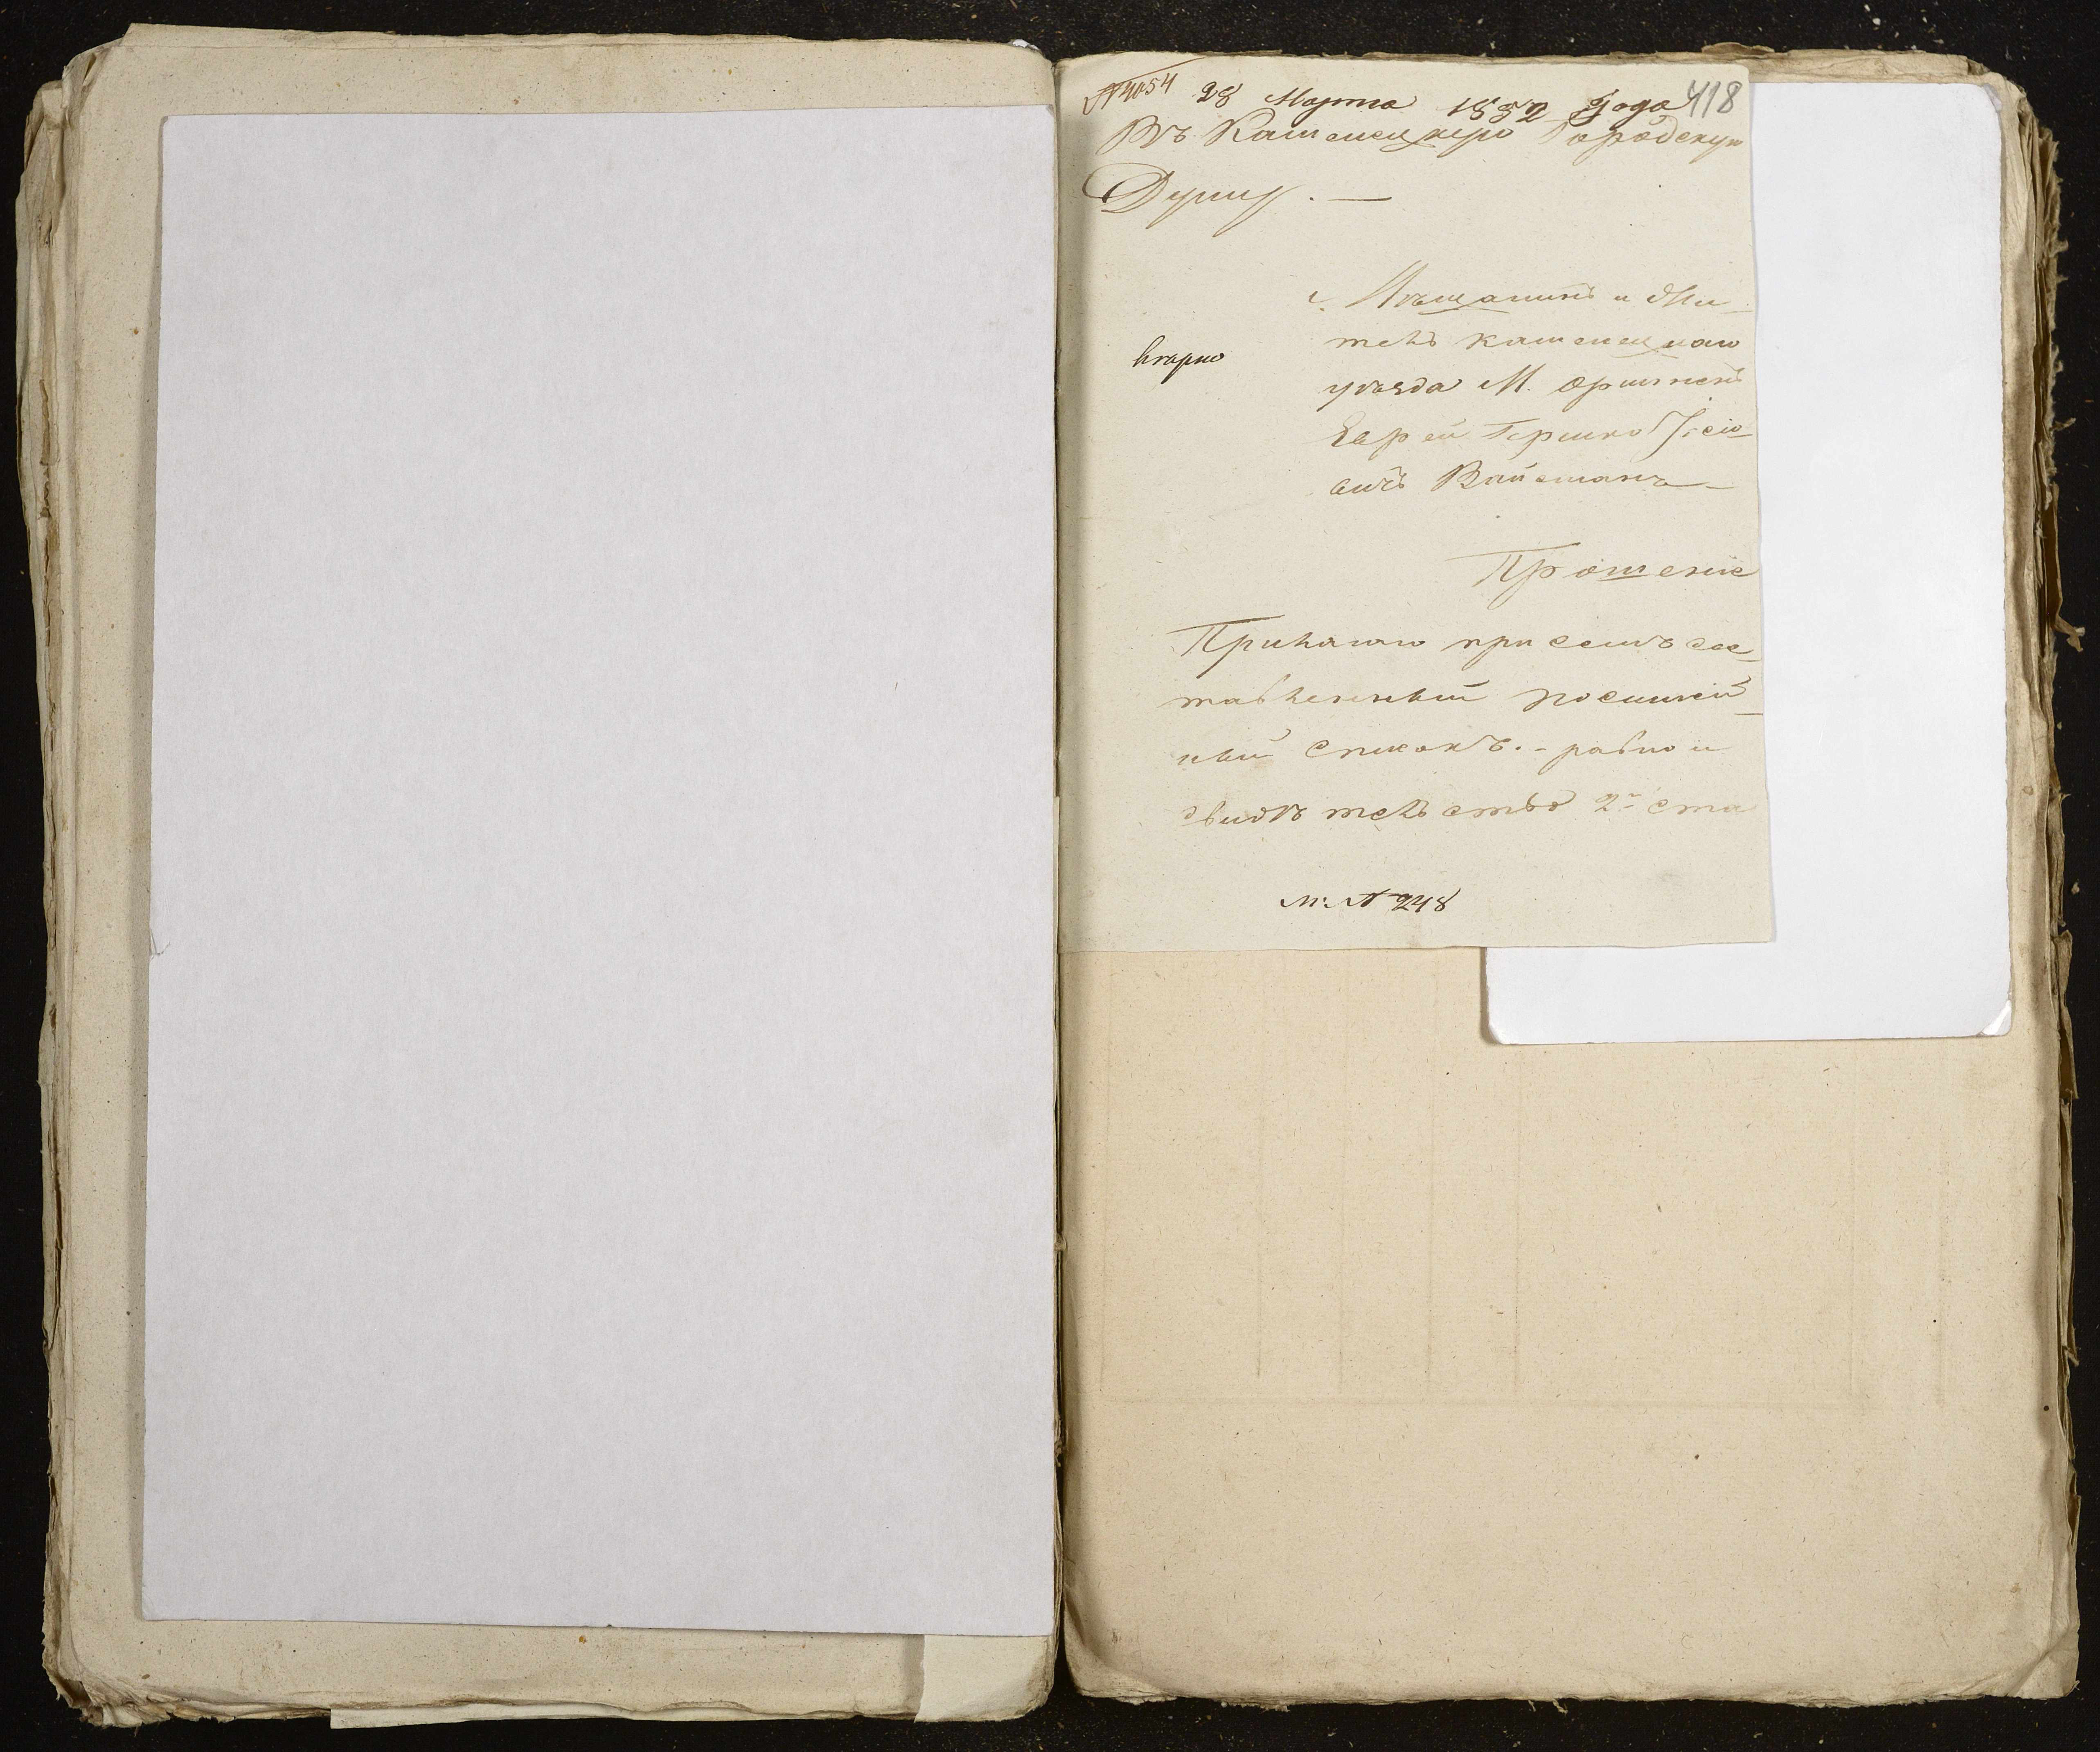 № 4054 28 Марта 1852 Года 418
Въ Каменецкую Городскую
Думу. —
Мѣщанинъ и Жи-
тель Каменецкаго
уѣзда М. Орининъ
Еврей Гершко
вичъ Вайсманъ
Прошеніе
Прилагаю при семъ сос-
тавленный посимей-
ный списокъ. - равно и
свидѣтельство 2й ста
М: № 248